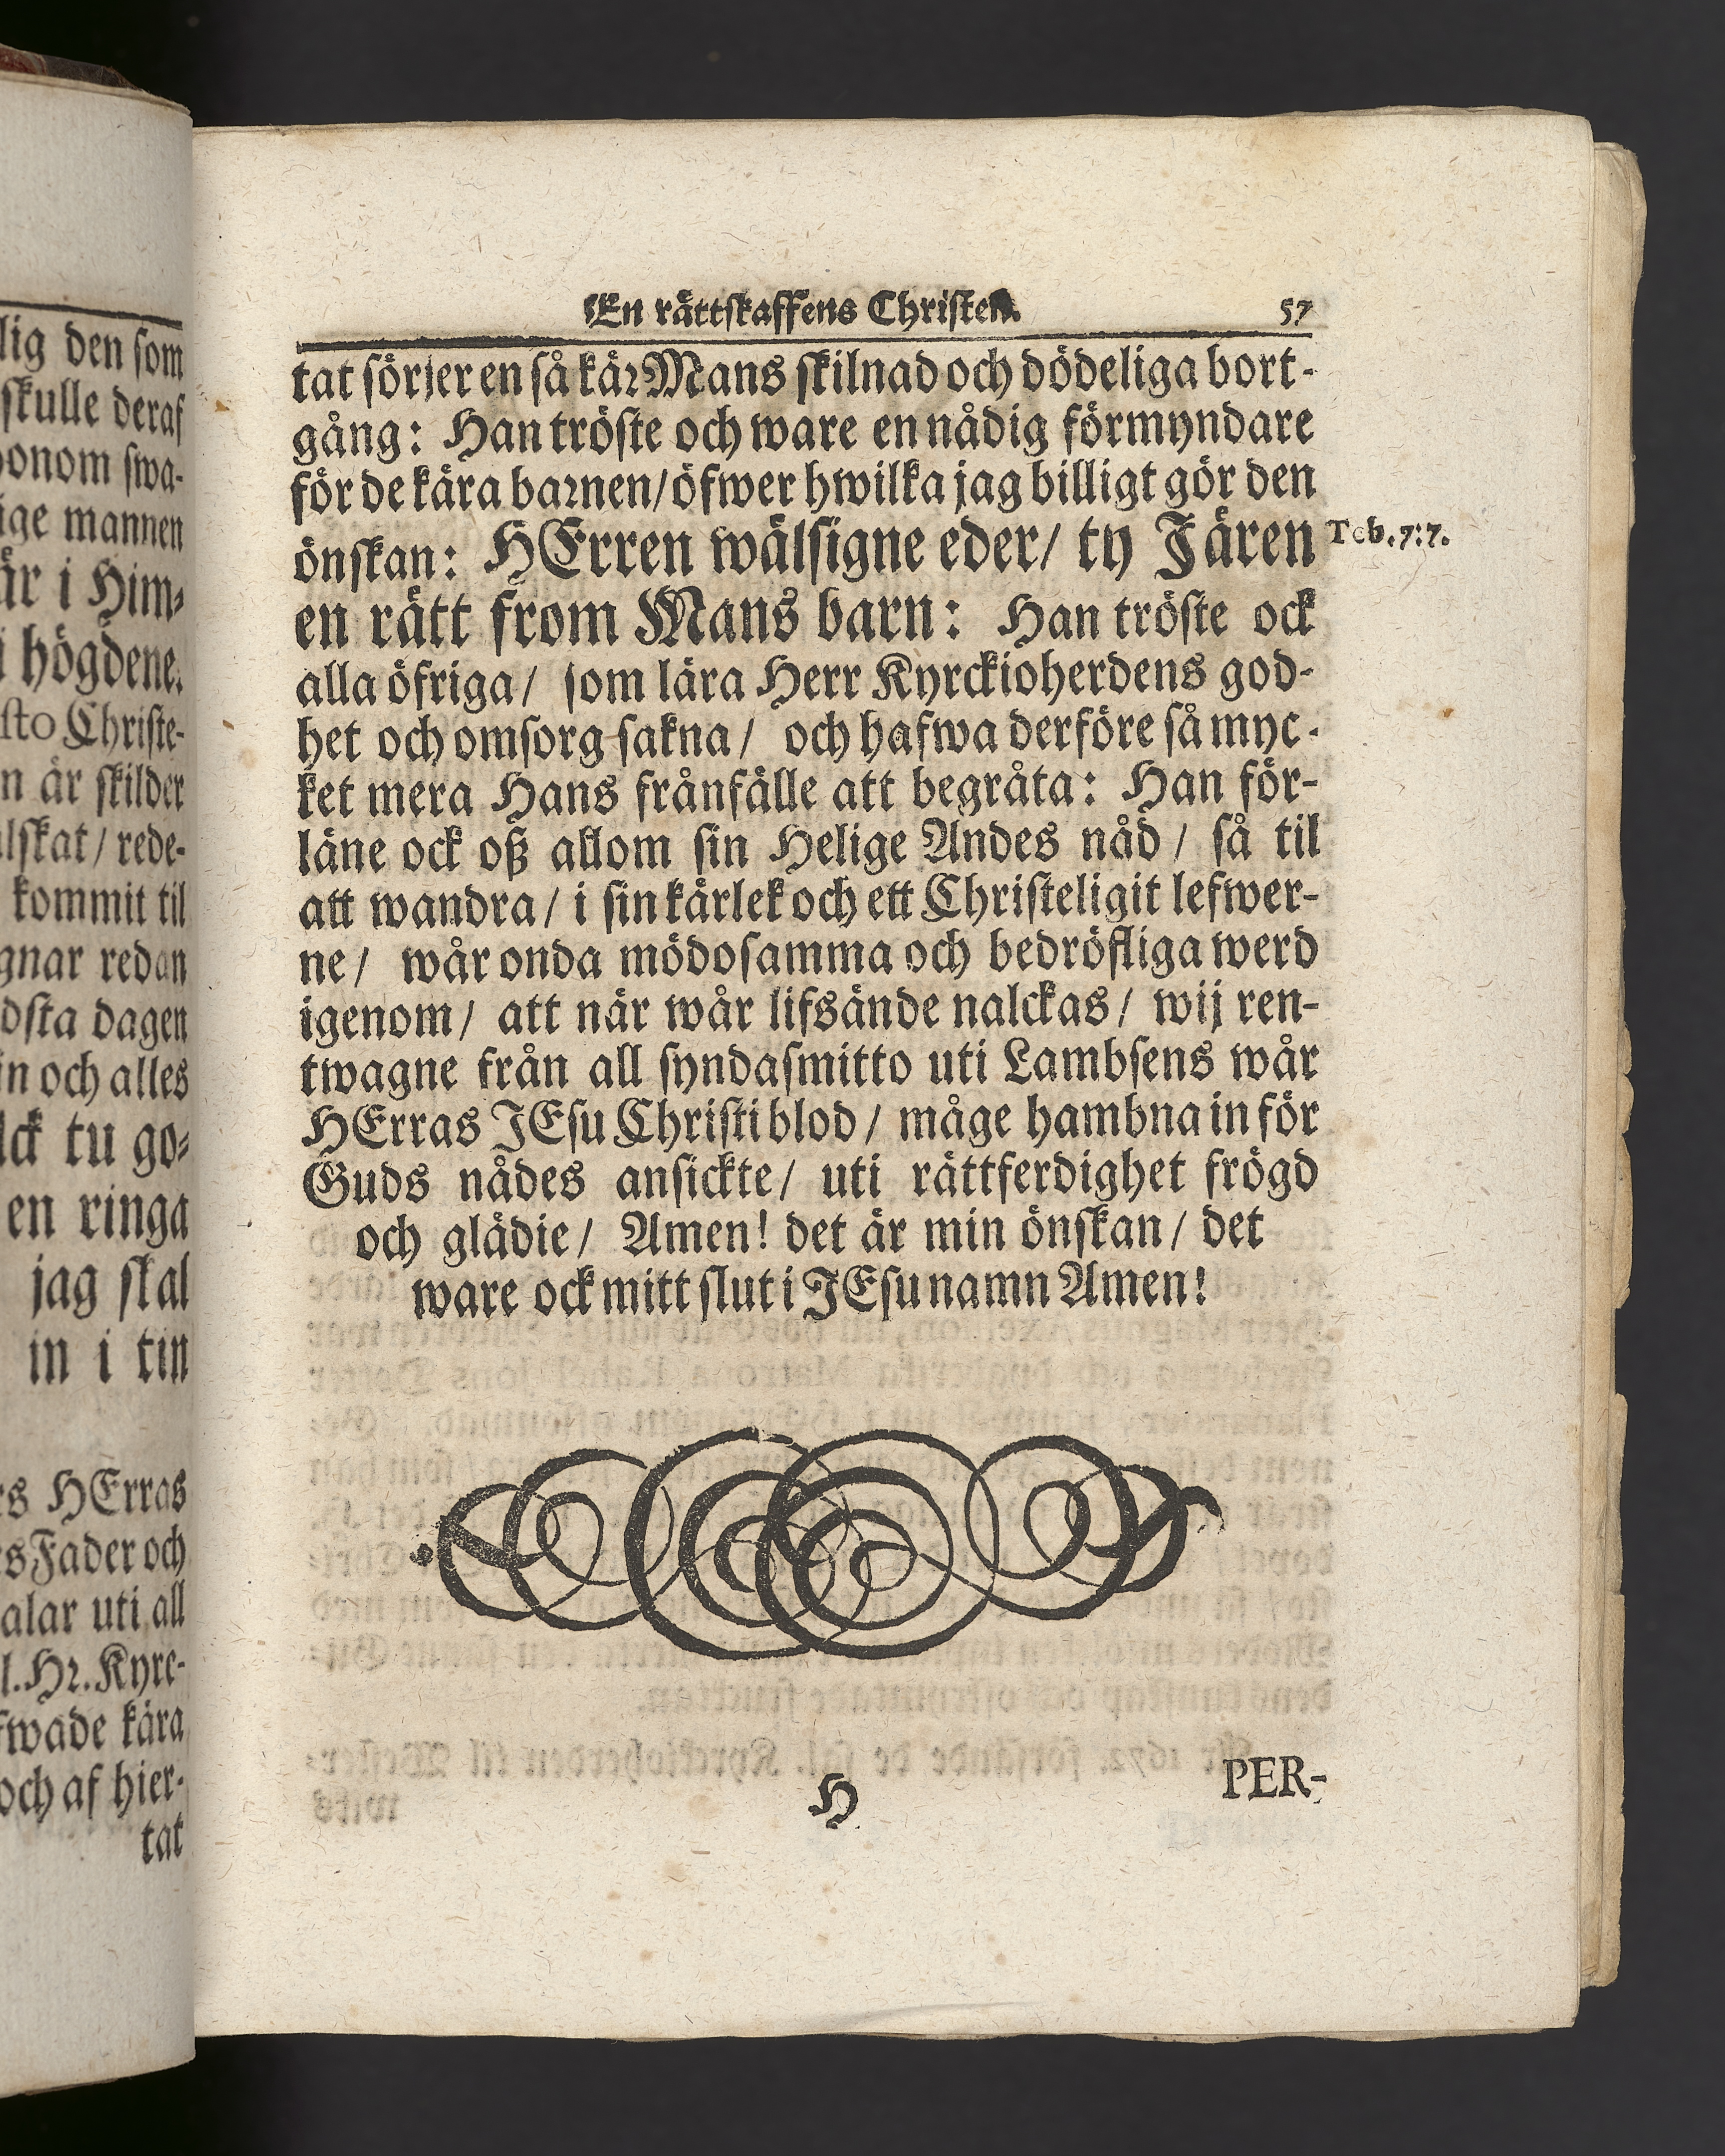 lig den som
skulle deraf
honom swa-
ige mannen
är i Him-
i högdene.
sto Christe-
n är skilder
lskat / rede-
kommit til
gnar redan
dsta dagen
in och alles
lck tu go-
en ringa
jag skal
in i tin
rs HErras
rs Fader och
alar uti all
l. Hr. Kyrc-
fwade kära
och af hier-
tat
En rättskaffens Christen. 57
tat sörjer en så kär Mans skilnad och dödeliga bort-
gång: Han tröste och ware en nådig förmyndare
för de kära barnen/ öfwer hwilka jag billigt gör den
önskan: HErren wälsigne eder/ ty Jären
Tob. 7:7.
en rätt from Mans barn: Han tröste ock
alla öfriga/ som lära Herr Kyrckioherdens god-
het och omsorg sakna/ och hafwa derföre så myc-
ket mera Hans frånfälle att begråta: Han för-
läne ock oß allom sin Helige Andes nåd/ så til
att wandra/ i sin kärlek och ett Christeligit lefwer-
ne/ wår onda mödosamma och bedröfliga werd
igenom/ att när wår lifsände nalckas/ wij ren-
twagne från all syndasmitto uti Lambsens wår
HErras JEsu Christi blod/ måge hambna in för
Guds nådes ansickte/ uti rättferdighet frögd
och glädie/ Amen! det är min önskan/ det
ware ock mitt slut i JEsu namn Amen!
H
PER-